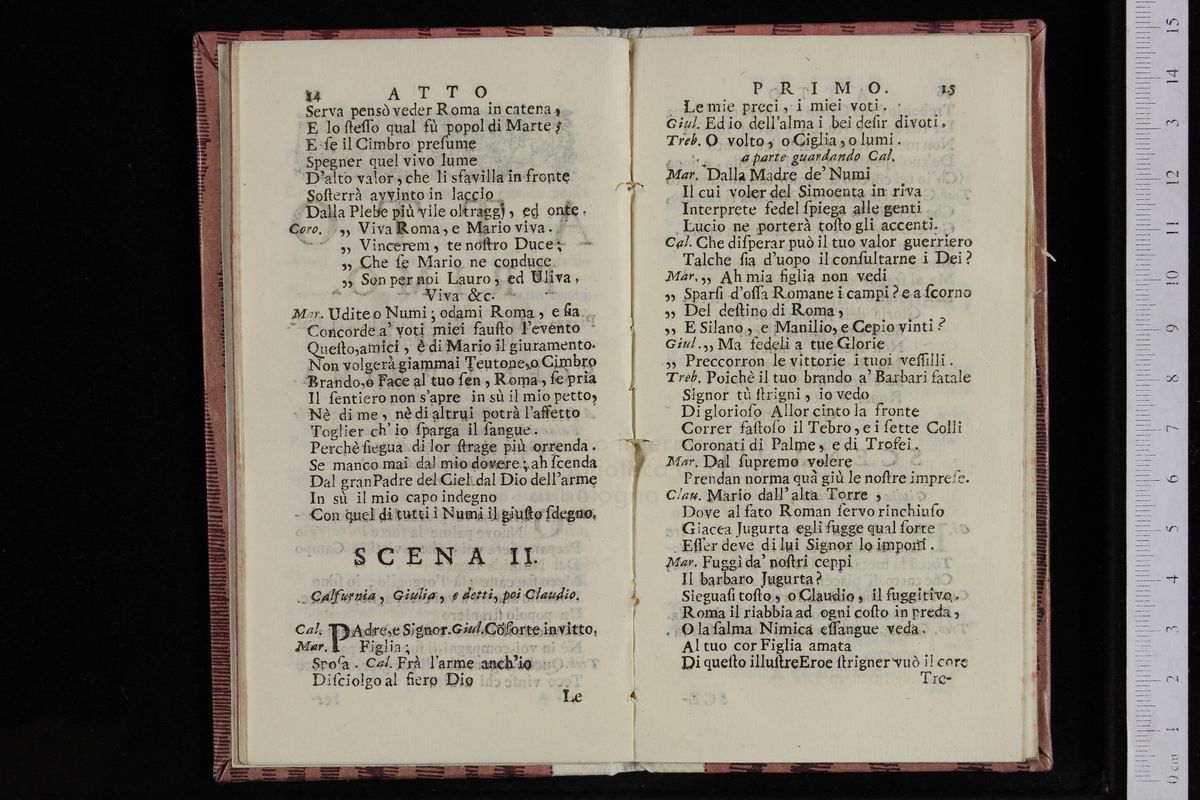 14 ATTO
Serva pensò veder Roma in catena,
E lo ſteſſo qual fù popol di Marte;
E ſe il Cimbro preſume
Spegner quel vivo lume
D'alto valor, che li sfavilla in fronte
Soſterrà avvinto in laccio
Dalla Plebe più vile oltraggj, ed onte.
Coro. „ Viva Roma, e Mario viva.
„ Vincerem, te noſtro Duce;
„ Che ſe Mario ne conduce
„ Son per noi Lauro, ed Uliva.
Viva &c.
Mar. Udite o Numi; odami Roma, e ſia
Concorde a' voti miei fauſto l'evento
Queſto, amici, è di Mario il giuramento.
Non volgerà giammai Teutone, o Cimbro
Brando, o Face al tuo ſen, Roma, ſe pria
Il ſentiero non s'apre in sù il mio petto,
Nè di me, nè di altrui potrà l'affetto
Toglier ch'io ſparga il ſangue.
Perchè ſiegua di lor ſtrage più orrenda.
Se manco mai dal mio dovere; ah ſcenda
Dal gran Padre del Ciel dal Dio dell'arme
In sù il mio capo indegno
Con quel di tutti i Numi il giuſto ſdegno.
SCENA II.
Calfurnia, Giulia, e detti, poi Claudio.
Cal. PAdre, e Signor. Giul. Cōſorte invitto,
Mar. Figlia;
Spoſa. Cal. Frà l'arme anch'io
Diſciolgo al fiero Dio
Le
PRIMO. 15
Le mie preci, i miei voti.
Giul. Ed io dell'alma i bei deſir divoti.
Treb. O volto, o Ciglia, o lumi.
a parte guardando Cal.
Mar. Dalla Madre de' Numi
Il cui voler del Simoenta in riva
Interprete fedel ſpiega alle genti
Lucio ne porterà toſto gli accenti.
Cal. Che diſperar può il tuo valor guerriero
Talche ſia d'uopo il conſultarne i Dei?
Mar. „ Ah mia figlia non vedi
„ Sparſi d'oſſa Romane i campi? e a ſcorno
„ Del deſtino di Roma,
„ E Silano, e Manilio, e Cepio vinti?
Giul. „ Ma fedeli a tue Glorie
„ Preccorron le vittorie i tuoi veſſilli.
Treb. Poichè il tuo brando a' Barbari fatale
Signor tù ſtrigni, io vedo
Di glorioſo Allor cinto la fronte
Correr faſtoſo il Tebro, e i ſette Colli
Coronati di Palme, e di Trofei.
Mar. Dal ſupremo volere
Prendan norma quà giù le noſtre impreſe.
Clau. Mario dall'alta Torre,
Dove al fato Roman ſervo rinchiuſo
Giacea Jugurta egli fugge qual ſorte
Eſſer deve di lui Signor lo imponi.
Mar. Fuggì da' noſtri ceppi
Il barbaro Jugurta?
Sieguaſi toſto, o Claudio, il fuggitivo,
Roma il riabbia ad ogni coſto in preda,
O la ſalma Nimica eſſangue veda.
Al tuo cor Figlia amata
Di queſto illuſtre Eroe ſtrigner vuò il core
Tre-